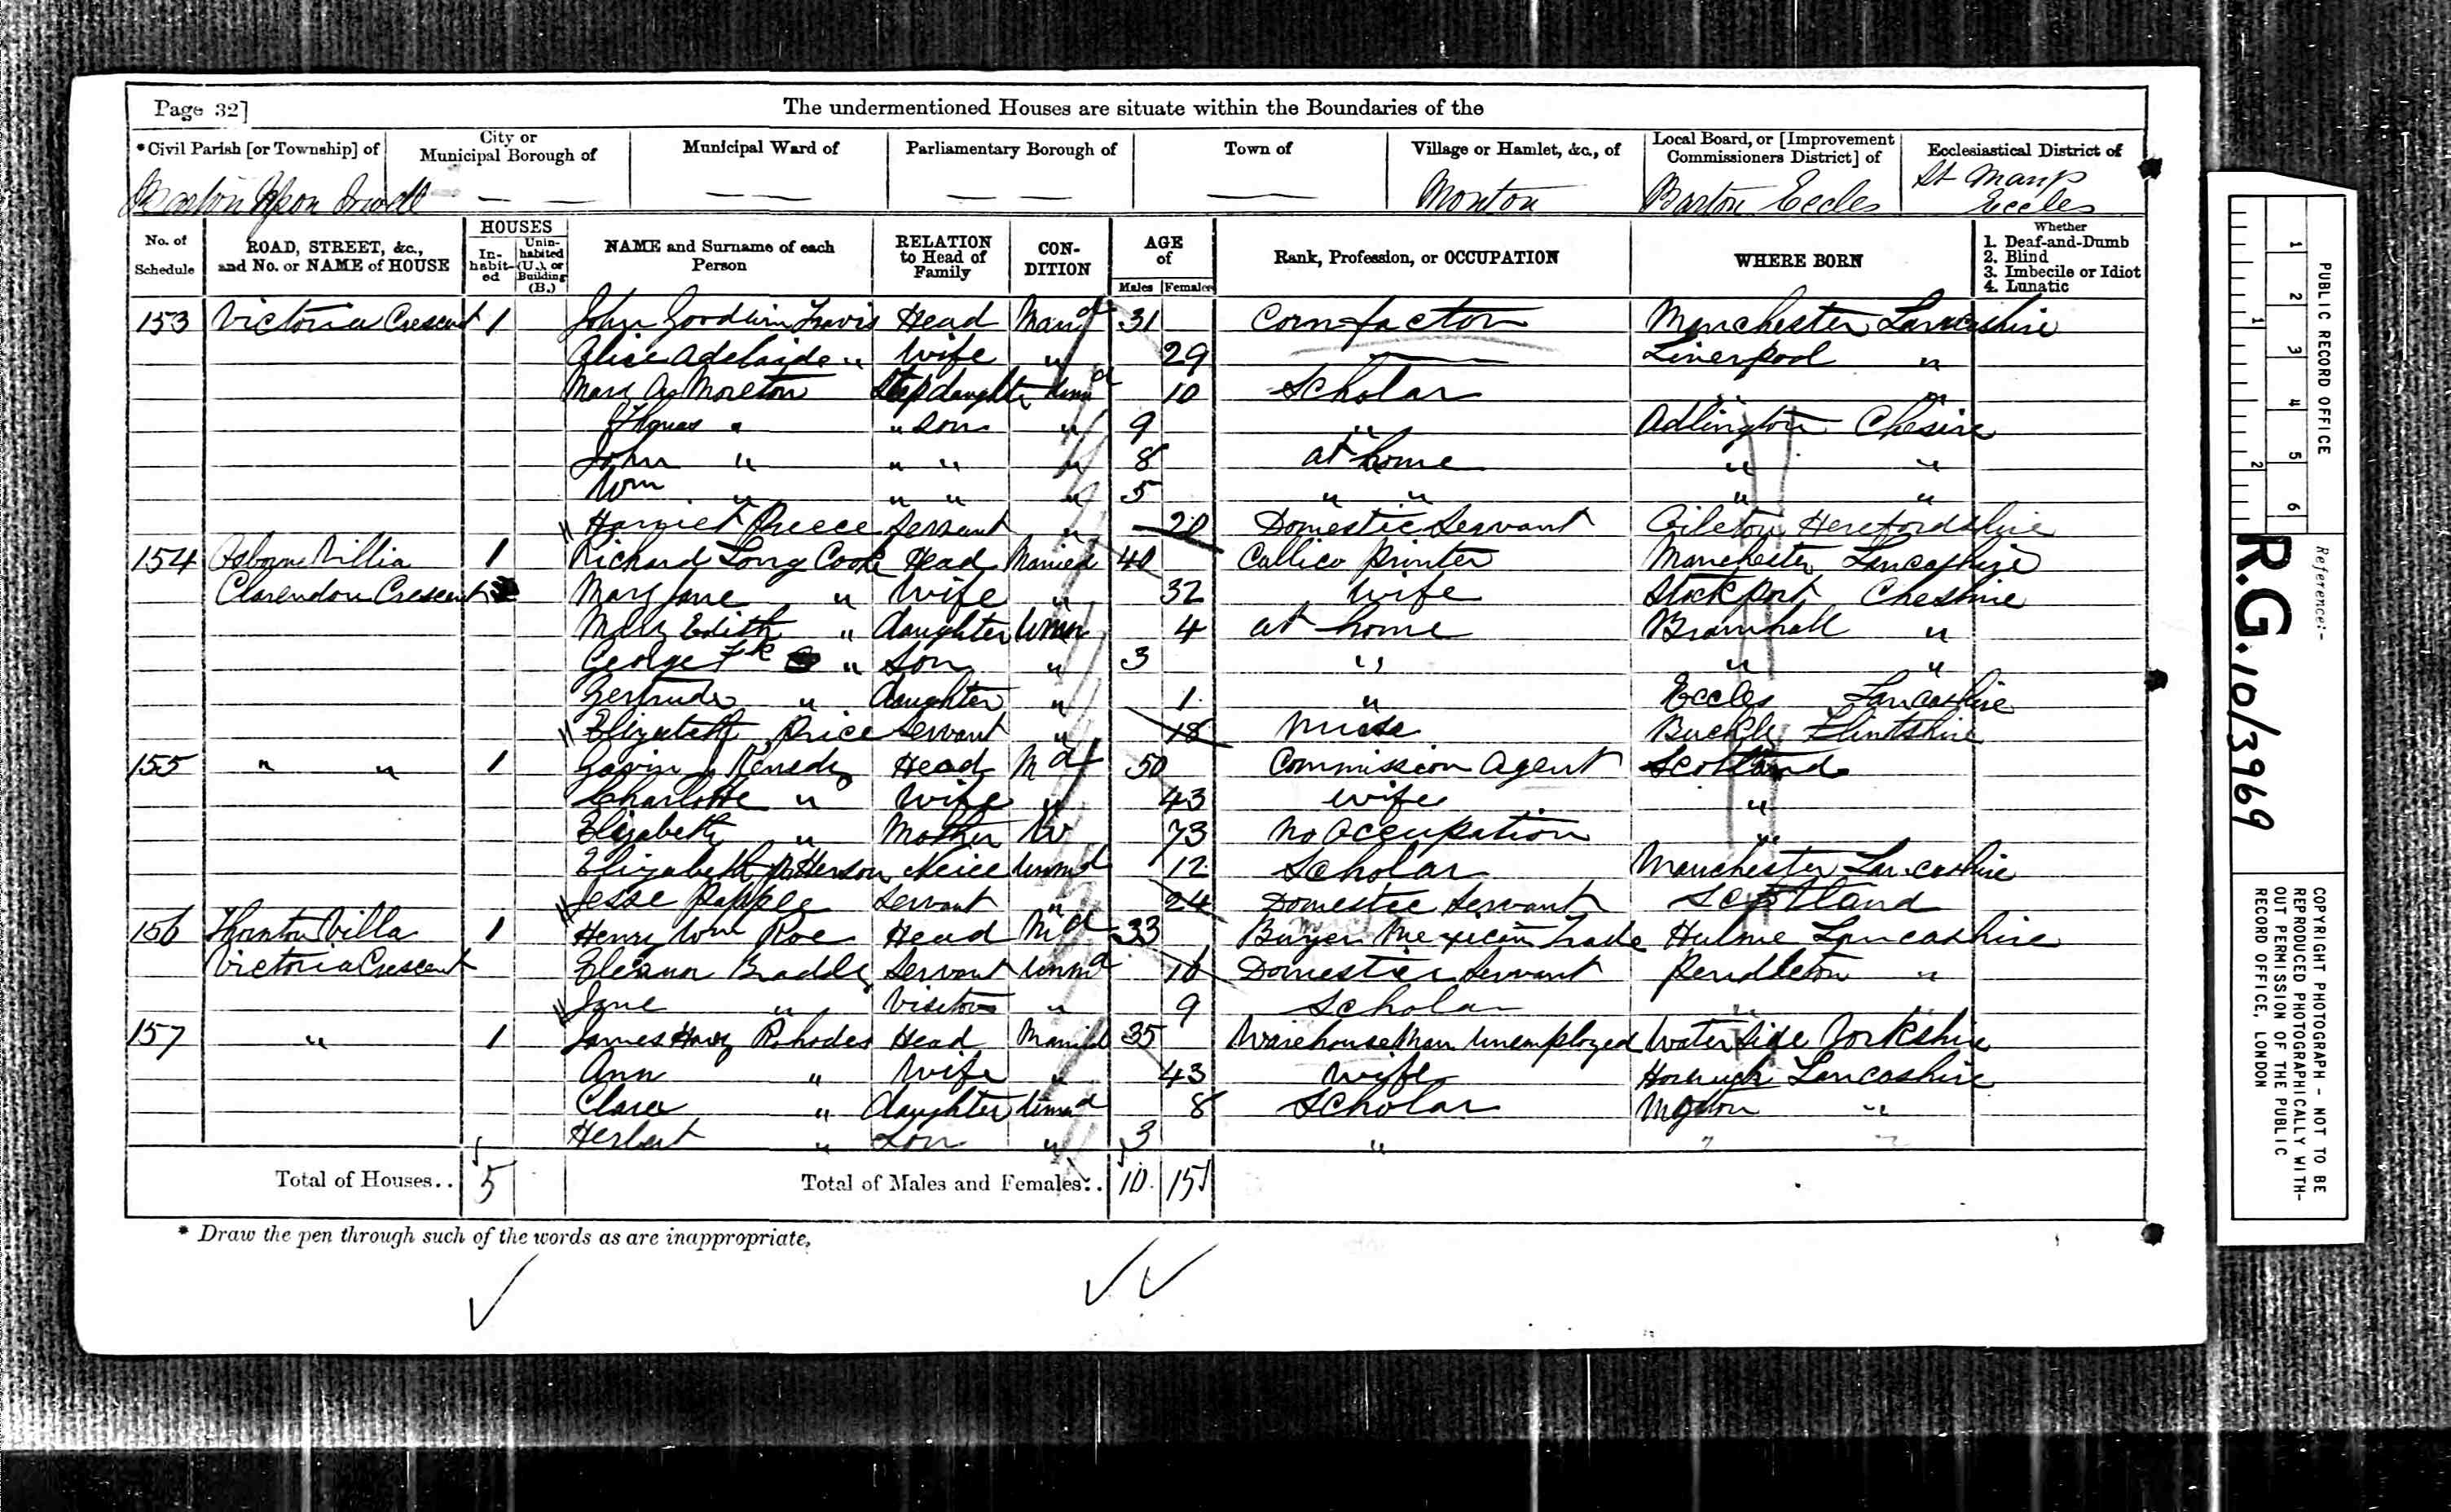 Page 32] The undermentioned Houses are situate within the Boundaries of the
*Civil Parish [or Township] of City or Municipal Borough of Municipal Ward of Parliamentary Borough of Town of Village or Hamlet, &c., of Local Board, or [Improvement Commissioners District] of Ecclesiastical District of
Barton Upon Irwell — — — — — — — Monton Barton Eccles St Marys Eccles
No. of Schedule ROAD, STREET, &c., and No. or NAME of HOUSE HOUSES In-habit-ed Unin-habited (U.), or Building (B.) NAME and Surname of each Person RELATION to Head of Family CON-DITION AGE of Males Females Rank, Profession, or OCCUPATION WHERE BORN Whether 1. Deaf-and-Dumb 2. Blind 3. Imbecile or Idiot 4. Lunatic
153 Victoria Crescent 1 John Goodwin Travis Head Marrd 31 Corn factor Manchester Lancashire
Alice Adelaide " Wife " 29 — Liverpool "
Mary As Moreton Step daughter Unmd 10 Scholar " "
Thomas " " Son " 9 " Adlington Chesire
John " " " " 8 at home " "
Wm " " " " 5 " " " "
Harriet Preece Servant " 20 Domestic Servant Herefordshire
154 Osborne Villia 1 Richard Long Cook Head Married 40 Callico Printer Manchester Lancashire
Clarendon Crescent Mary Jane " Wife " 32 Wife Stockport Cheshire
Mary Edith " daughter Unm 4 at home Bramhall "
George Fk " Son " 3 " " "
Gertrude " daughter " 1 " Eccles Lancashire
Elizabeth Price Servant " 18 Nurse Buckle Flintshire
155 " " 1 Gavin Kenedy Head Md 50 Commission Agent Scotland
Charlotte " Wife " 43 wife "
Elizabeth " Mother W 73 No Occupation "
Elizabeth Patterson Neice Unmd 12 Scholar Manchester Lancashire
Jesse Papple Servant " 24 Domestic Servant Scotland
156 Thornton Villa 1 Henry Wm Roe Head Md 33 Buyer Mexican Trade Hulme Lancashire
Victoria Crescent Eleanor Braddley Servant Unmd 16 Domestic Servant Pendleton "
Jane " Visitor " 9 Scholar "
157 " 1 James Hary Rhodes Head Married 35 Warehouse Man Unemployed Water Side Yorkshire
Ann " Wife " 43 Wife Lancashire
Clara " daughter Unmd 8 Scholar "
Herbert " Son " 3 " " "
Total of Houses.. 5 Total of Males and Females.. 10 15
* Draw the pen through such of the words as are inappropriate.
1 2 3 4 5 6
1 2
PUBLIC RECORD OFFICE
Reference:-
R.G. 10/3969
COPYRIGHT PHOTOGRAPH - NOT TO BE
REPRODUCED PHOTOGRAPHICALLY WITH-
OUT PERMISSION OF THE PUBLIC
RECORD OFFICE, LONDON